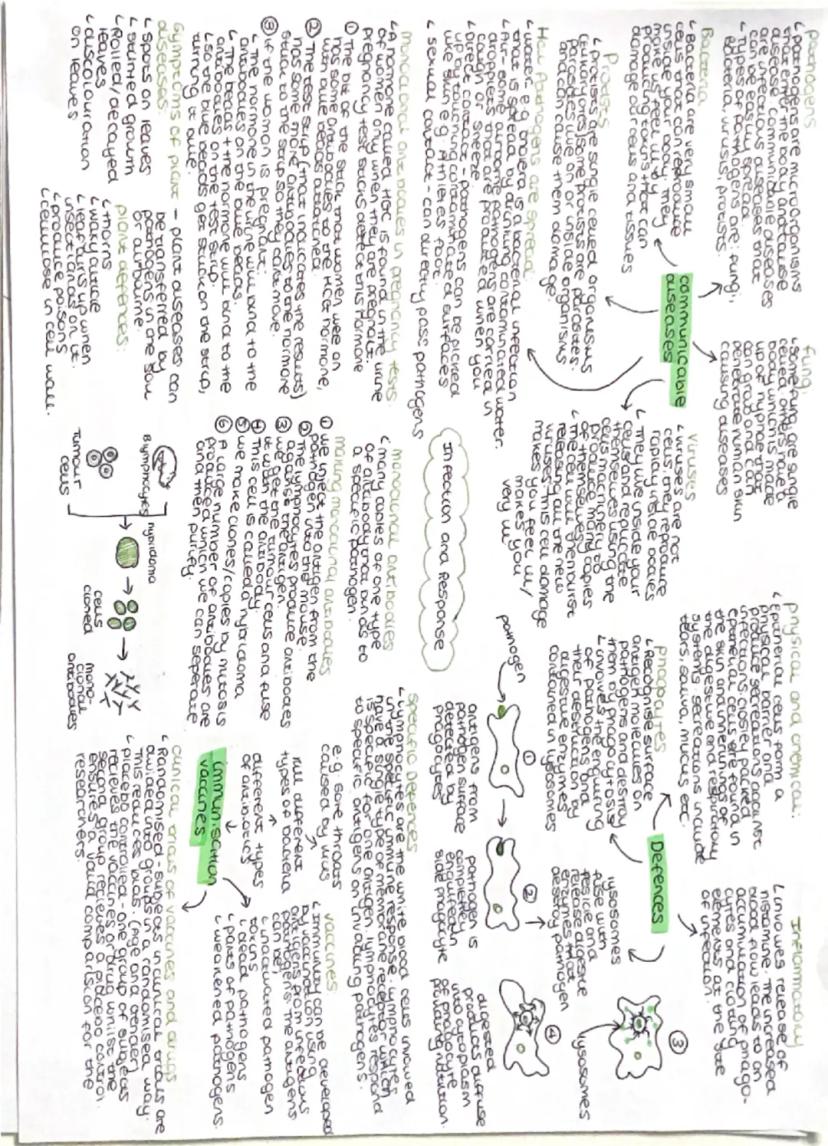 pathogens
↳ Pathogens are microorganisms
that enter the body and cause
disease. Communicable diseases
are infectious diseases that
can be easily spread.
↳ Types of pathogens are: fungi,
bacteria, virusis, protists.
Bacteria
↳ Bacteria are very small
cells that can reproduce
inside your body. They
make us feel ill by
producing toxins - that can
damage our cells and tissues
Protists
↳ protists are single celled organisms
(eukaryotes) some protists are parasites.
parasites live on or inside organisms
and can cause them damage.
How Pathogens are spread
↳ water e.g. cholera is a bacterial infection
that is spread by drinking contaminated water.
↳ Air some airborne pathogens are carried in
droplets that are produced when you
cough or sneeze
↳ Direct contact - pathogens can be picked
up by touching contaminated surfaces
like skin e.g. Athletes foot.
↳ sexual contact - can directly pass pathogens
communicable
diseases
Fungi
↳ Some fungi are single
celled others have a
body which is made
up of hyphae that
can grow and can
penetrate human skin
causing diseases
viruses
↳ viruses are not
cells, they reproduce
rapidly inside bodies
↳ They live inside your
cells and replicate
themselves using the
cells machinery to
produce many copies
of themselves.
↳ The cell will then burst
releasing all the new
viruses - this cell damage
makes you feel ill/
makes you
very ill
Infection and Response
physical and chemical:
↳ Epithelial cells form a
physical barrier and
produce secretions against
infections. Closely packed
epithelial cells are found in
the skin and inner linings of
the digestive and respiratory
systems. secretions include
tears, saliva, mucus etc.
phagocytes
↳ Recognise surface
antigen molecules on
pathogens and destroy
them by phagocytosis
↳ involves the engulfing
of pathogens and
their destruction by
digestive enzymes
contained in lysosomes
Defences
Inflammatory
↳ involves release of
histamine. The increased
blood flow leads to an
accumulation of phago-
cytes and clotting
elements at the site
of infection.
pathogen
①
antigens from
pathogen surface
detected by
phagocytes
②
pathogen is
completely
engulfed in
side phagocyte
lysosomes
fuse with
vesicle and
release digestive
enzymes that
destroy pathogen
③
lysosomes
④
digested
products diffuse
into cytoplasm
of phagocyte
providing nutrition.
monoclonal antibodies in pregnancy tests
↳ A hormone called HCG is found in the urine
of women only when they are pregnant.
pregnancy test sticks detect this hormone
① The bit of the stick that women wee on
has some antibodies to the HCG hormone,
with blue beads attatched.
② The test strip (that indicates the results)
has some more antibodies to the hormone
stuck to the strip so they cant move.
③ If the woman is pregnant:
↳ The hormone in the urine will bind to the
antibodies on the blue beads.
↳ The beads + the hormone will bind to the
antibodies on the test strip.
↳ so the blue beads get stuck on the strip,
turning it blue.
Symptoms of plant
diseases.
↳ spots on leaves
↳ stunted growth
↳ Rolled/decayed
leaves
↳ discolouration
on leaves
- plant diseases can
be transferred by
pathogens in the soil
or airbourne.
plant defences:
↳ thorns
↳ waxy cuticle
↳ leaf curls up when
insect lands on it.
↳ produce poisons
↳ cellulose in cell wall.
monoclonal antibodies
↳ many copies of one type
of antibody that binds to
a specific pathogen.
making monoclonal antibodies
① we inject the antigen from the
pathogen into the mouse.
② The lymphocytes produce antibodies
against the antigen.
③ we get the tumour cells and fuse
it with the antibody.
④ This cell is called hybridoma
⑤ we make clones/copies by mitosis
⑥ A large number of antibodies are
produced which we can seperate
and then purify.
B lymphocytes
Tumour
cells
hybridoma
cells
cloned
mono-
clonal
antibodies
specific defences
↳ Lymphocytes are the white blood cells involved
in the specific immune response. Lymphocytes
have a single type of membrane receptor which
is specific for one antigen. lymphocytes respond
to specific antigens on invading pathogens.
e.g. sore throats
caused by virus
kill different
types of bacteria
different types
of antibiotics
immunisation
vaccines
vaccines.
↳ immunity can be developed
by vaccination using
antigens from infectious
pathogens. The antigens
can be;
↳ inactivated pathogen
toxins
↳ dead pathogens
↳ parts of pathogens
↳ weakened pathogens.
clinical trials of vaccines and drugs
↳ Randomised - subjects in clinical trials are
divided into groups in a randomised way.
This reduces bias. (Age and Gender)
↳ placebo controlled - one group of subjects
recieves the vaccines or drug whilst the
second group recieves a placebo. control
ensures a valid comparison for the
researchers.